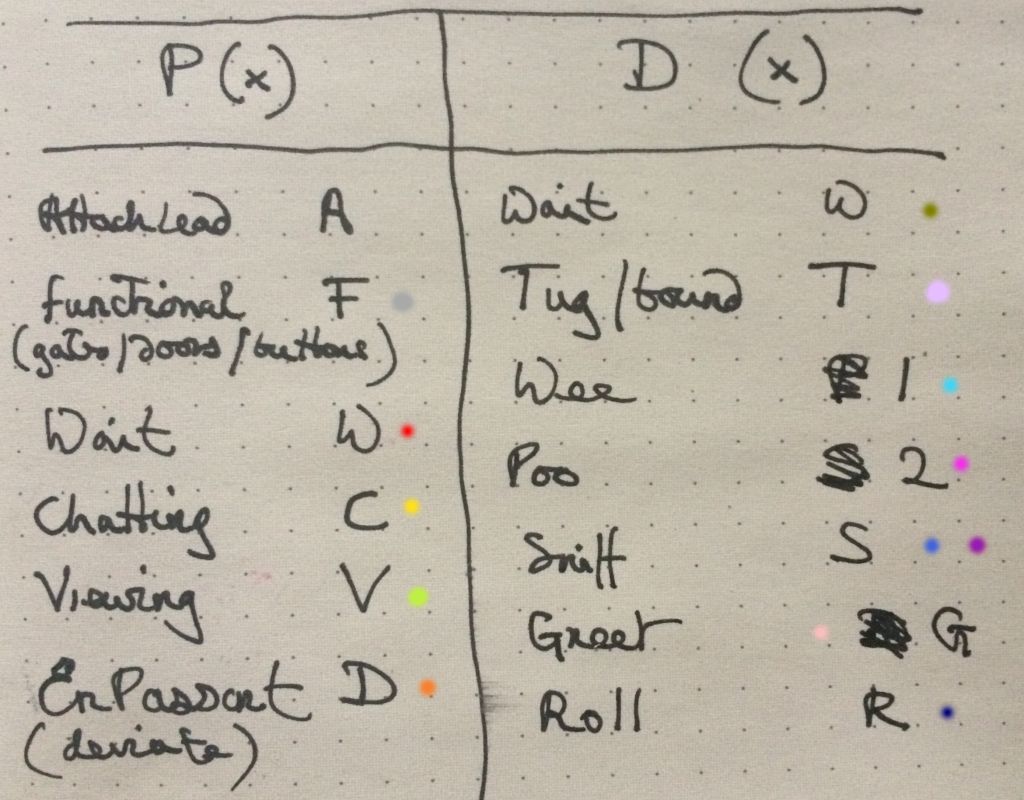 P(x) D (x)
Attach Lead A Wait W
functional F Tug/bound T
(gates/doors/buttons) Wee 1
Wait W Poo 2
Chatting C Sniff S
Viewing V Greet G
En Passant D Roll R
(deviate)